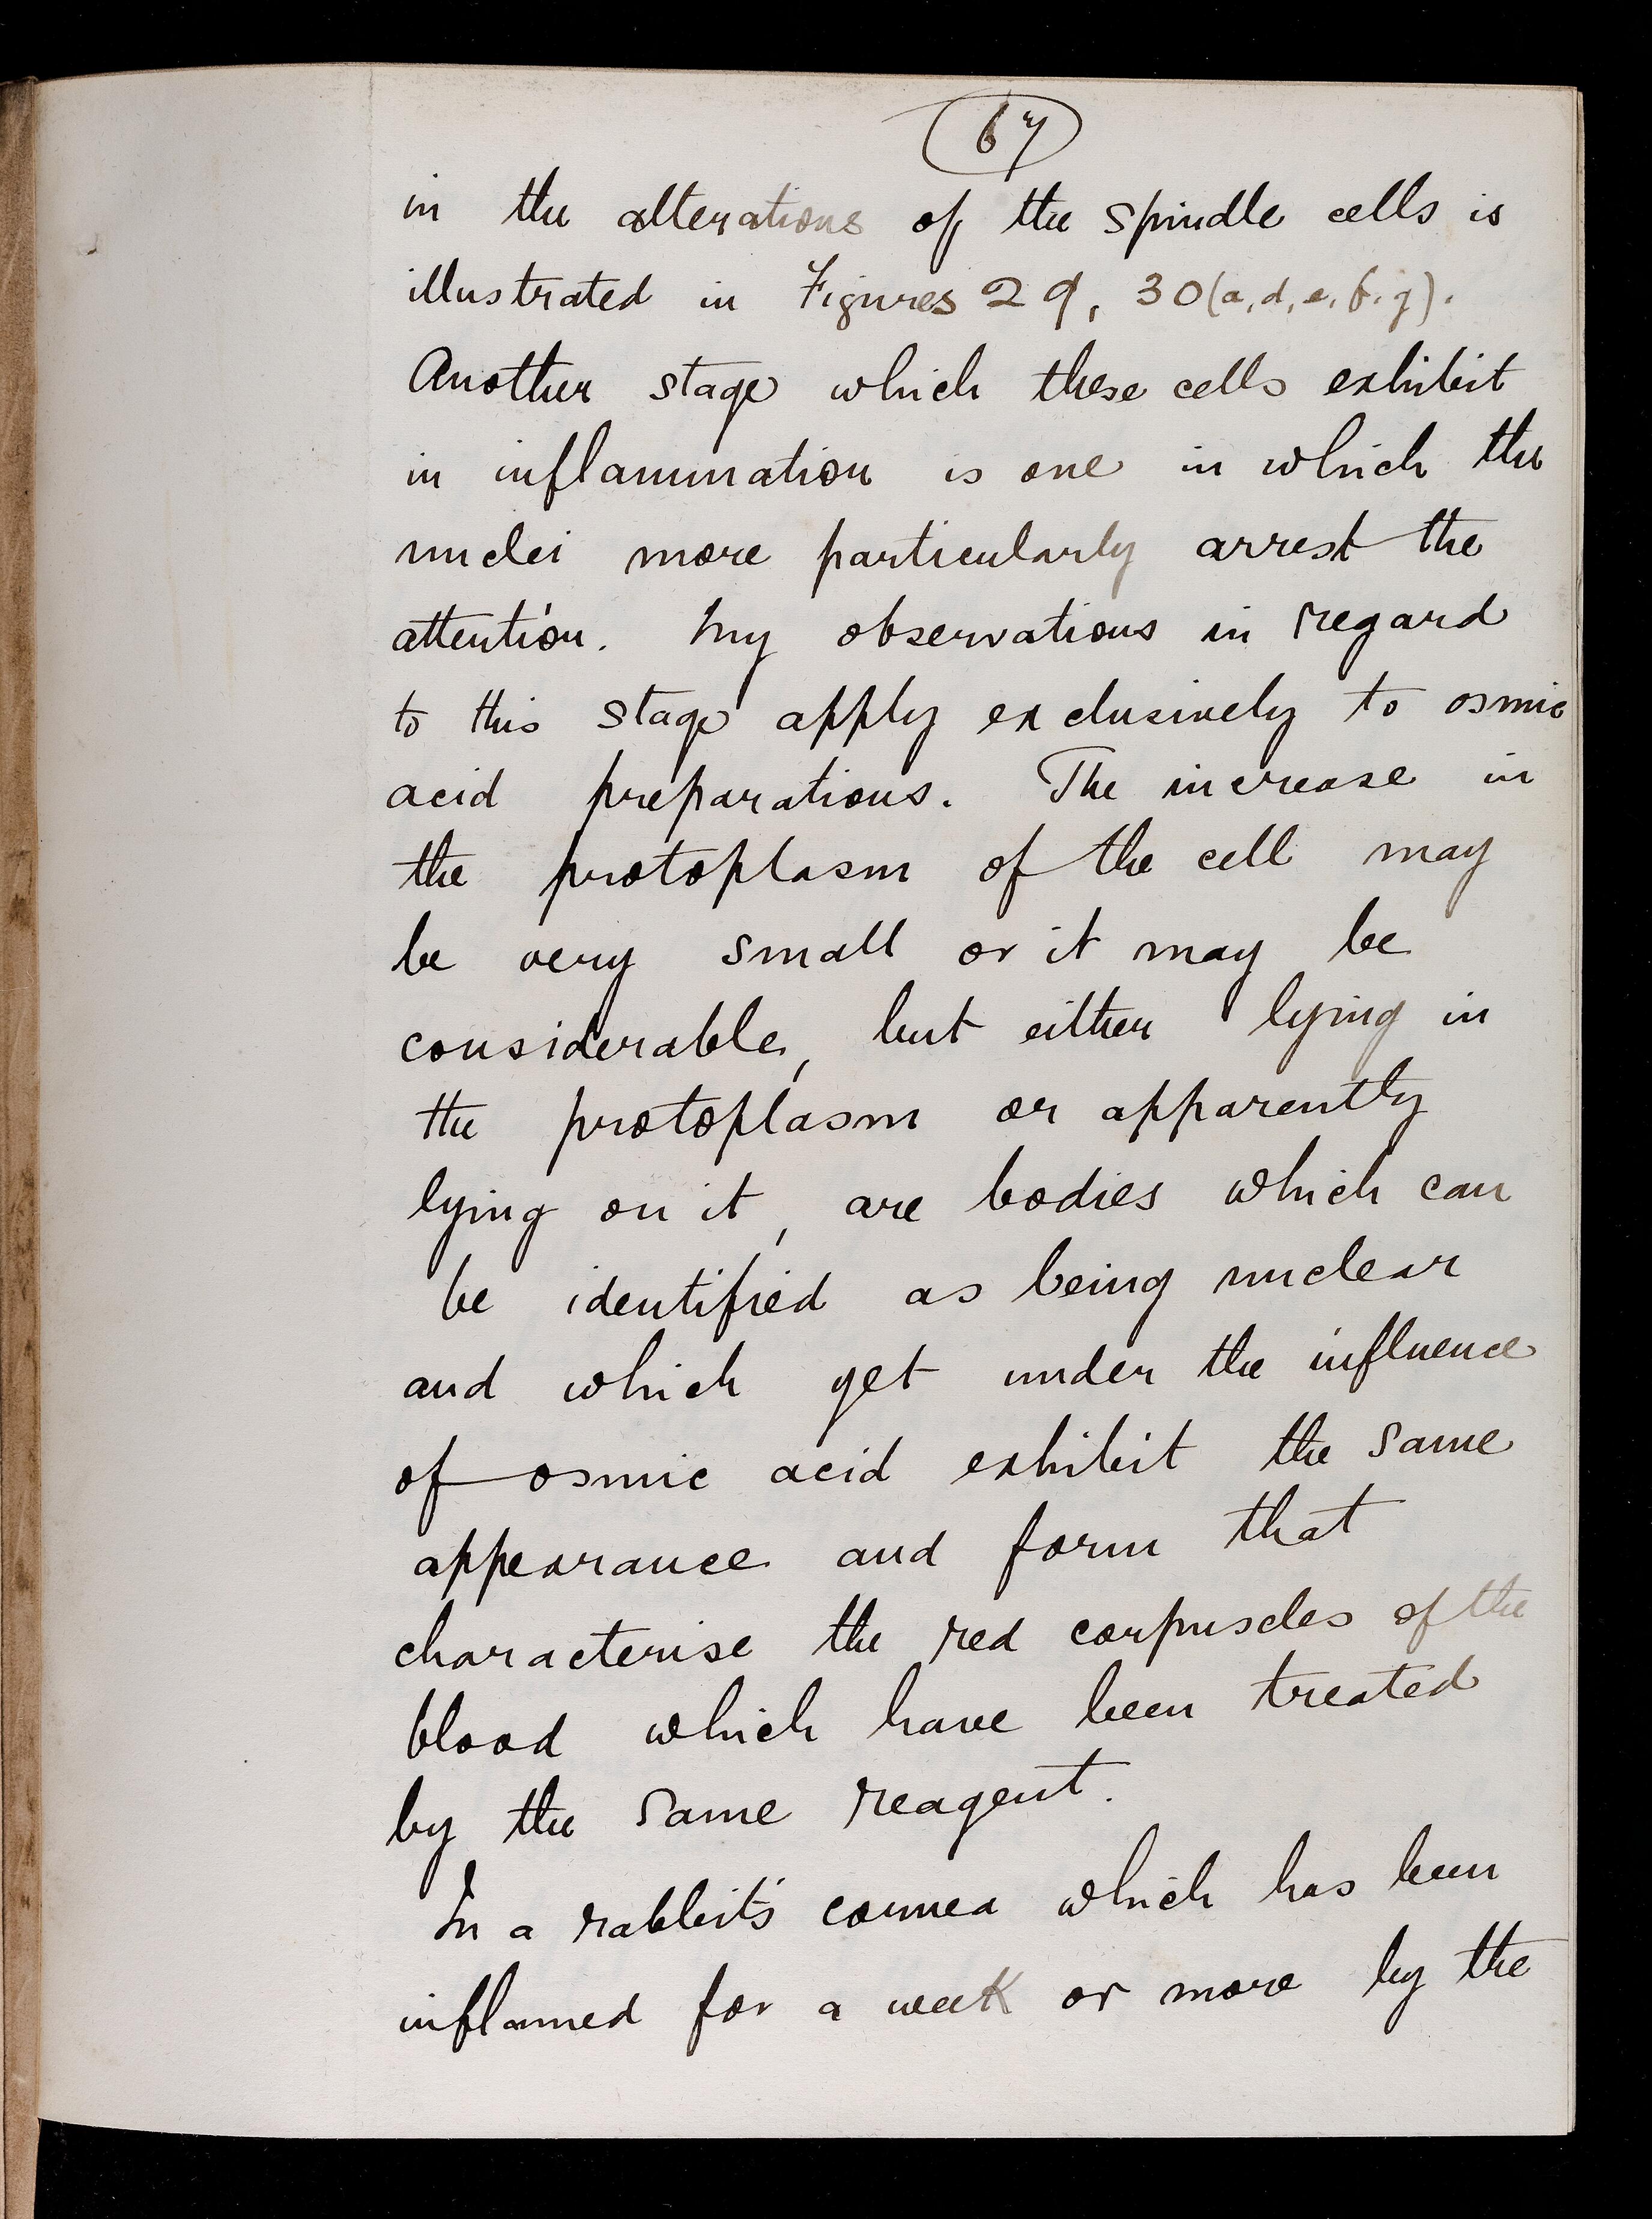 67
in the alterations of the spindle cells is
illustrated in Figures 29, 30(a, d, e, f, g).
Another stage which these cells exhibit
in inflammation is one in which the
nuclei more particularly arrest the
attention. My observations in regard
to this stage apply exclusively to osmic
acid preparations. The increase in
the protoplasm of the cell may
be very small or it may be
considerable, but either lying in
the protoplasm or apparently
lying on it, are bodies which can
be identified as being nuclear
and which yet under the influence
of osmic acid exhibit the same
appearance and form that
characterise the red corpuscles of the
blood which have been treated
by the same reagent.
In a rabbit's cornea which has been
inflamed for a week or more by the